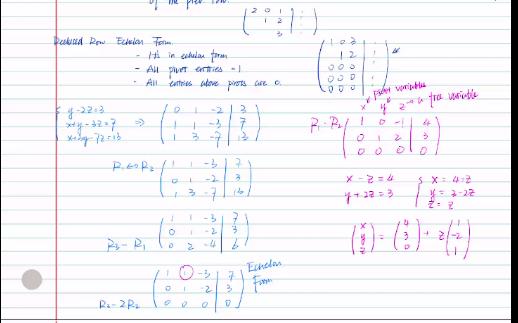 of the prev row.
( 2 0 1 | : 
1 2 | : 
3 | : )
Reduced Row Echelon Form
- It's in echelon form
- All pivot entries = 1
- All entries above pivots are 0.
( 1 0 3 | : 
1 2 | : 
0 0 0 | : 
0 0 0 | : 
0 0 0 | : )
{ y-2z=3
x+y-3z=7
⇒ ( 0 1 -2 | 3 
1 1 -3 | 7 
1 3 -7 | 13 )
R1↔R2 ( 1 1 -3 | 7 
0 1 -2 | 3 
1 3 -7 | 13 )
R3-R1 ( 1 1 -3 | 7 
0 1 -2 | 3 
0 2 -4 | 6 )
R3-2R2 ( 1 1 -3 | 7 
0 1 -2 | 3 
0 0 0 | 0 )
Echelon
Form
pivot variables
x y z → free variable
R1-R2 ( 1 0 -1 | 4 
0 1 2 | 3 
0 0 0 | 0 )
x - z = 4
y + 2z = 3
{ x = 4+z
y = 3-2z
z = z
( x 
y 
z ) = ( 4 
3 
0 ) + z ( 1 
-2 
1 )